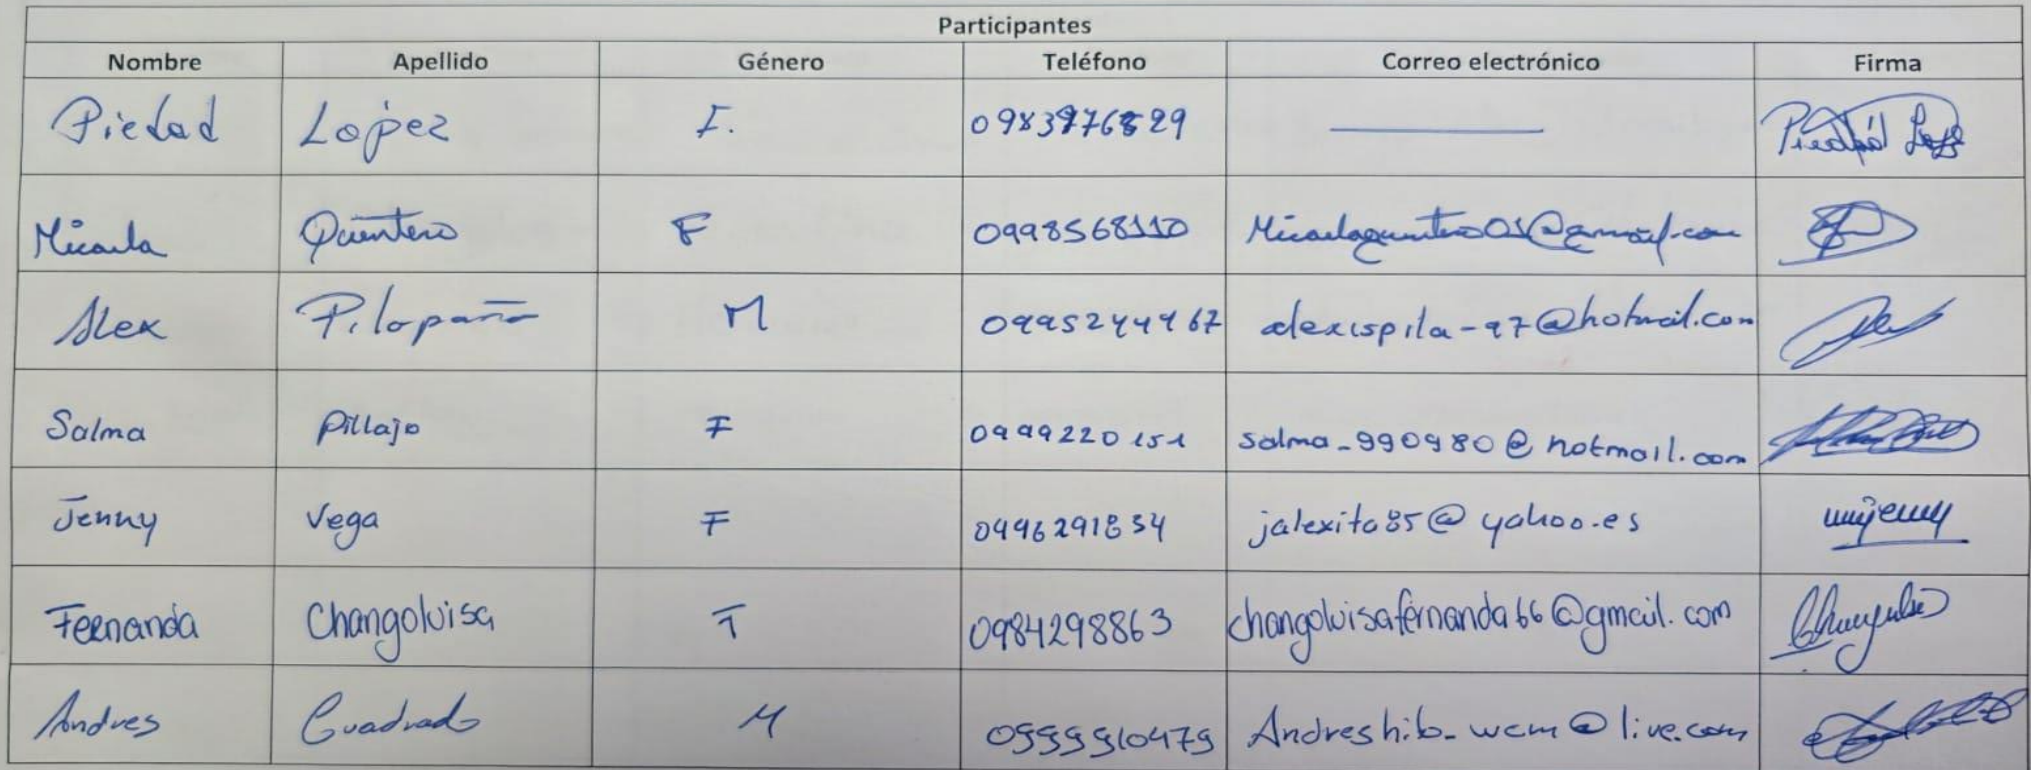 Participantes
Nombre Apellido Género Teléfono Correo electrónico Firma
Piedad López F. Piedad
Micaela Quintero F 0998568110 Micaelaquintero01@gmail.com
Alex Pilapaña M 0995244467 alexispila-97@hotmail.com
Salma Pillajo F 0999220151 salma_990980@hotmail.com
Jenny Vega F 0996291834 jalexita85@yahoo.es
Fernanda Changoluisa F 0984298863 changoluisafernanda66@gmail.com
Andres Cuadrado M 0999910479 Andreshib_wcm@live.com